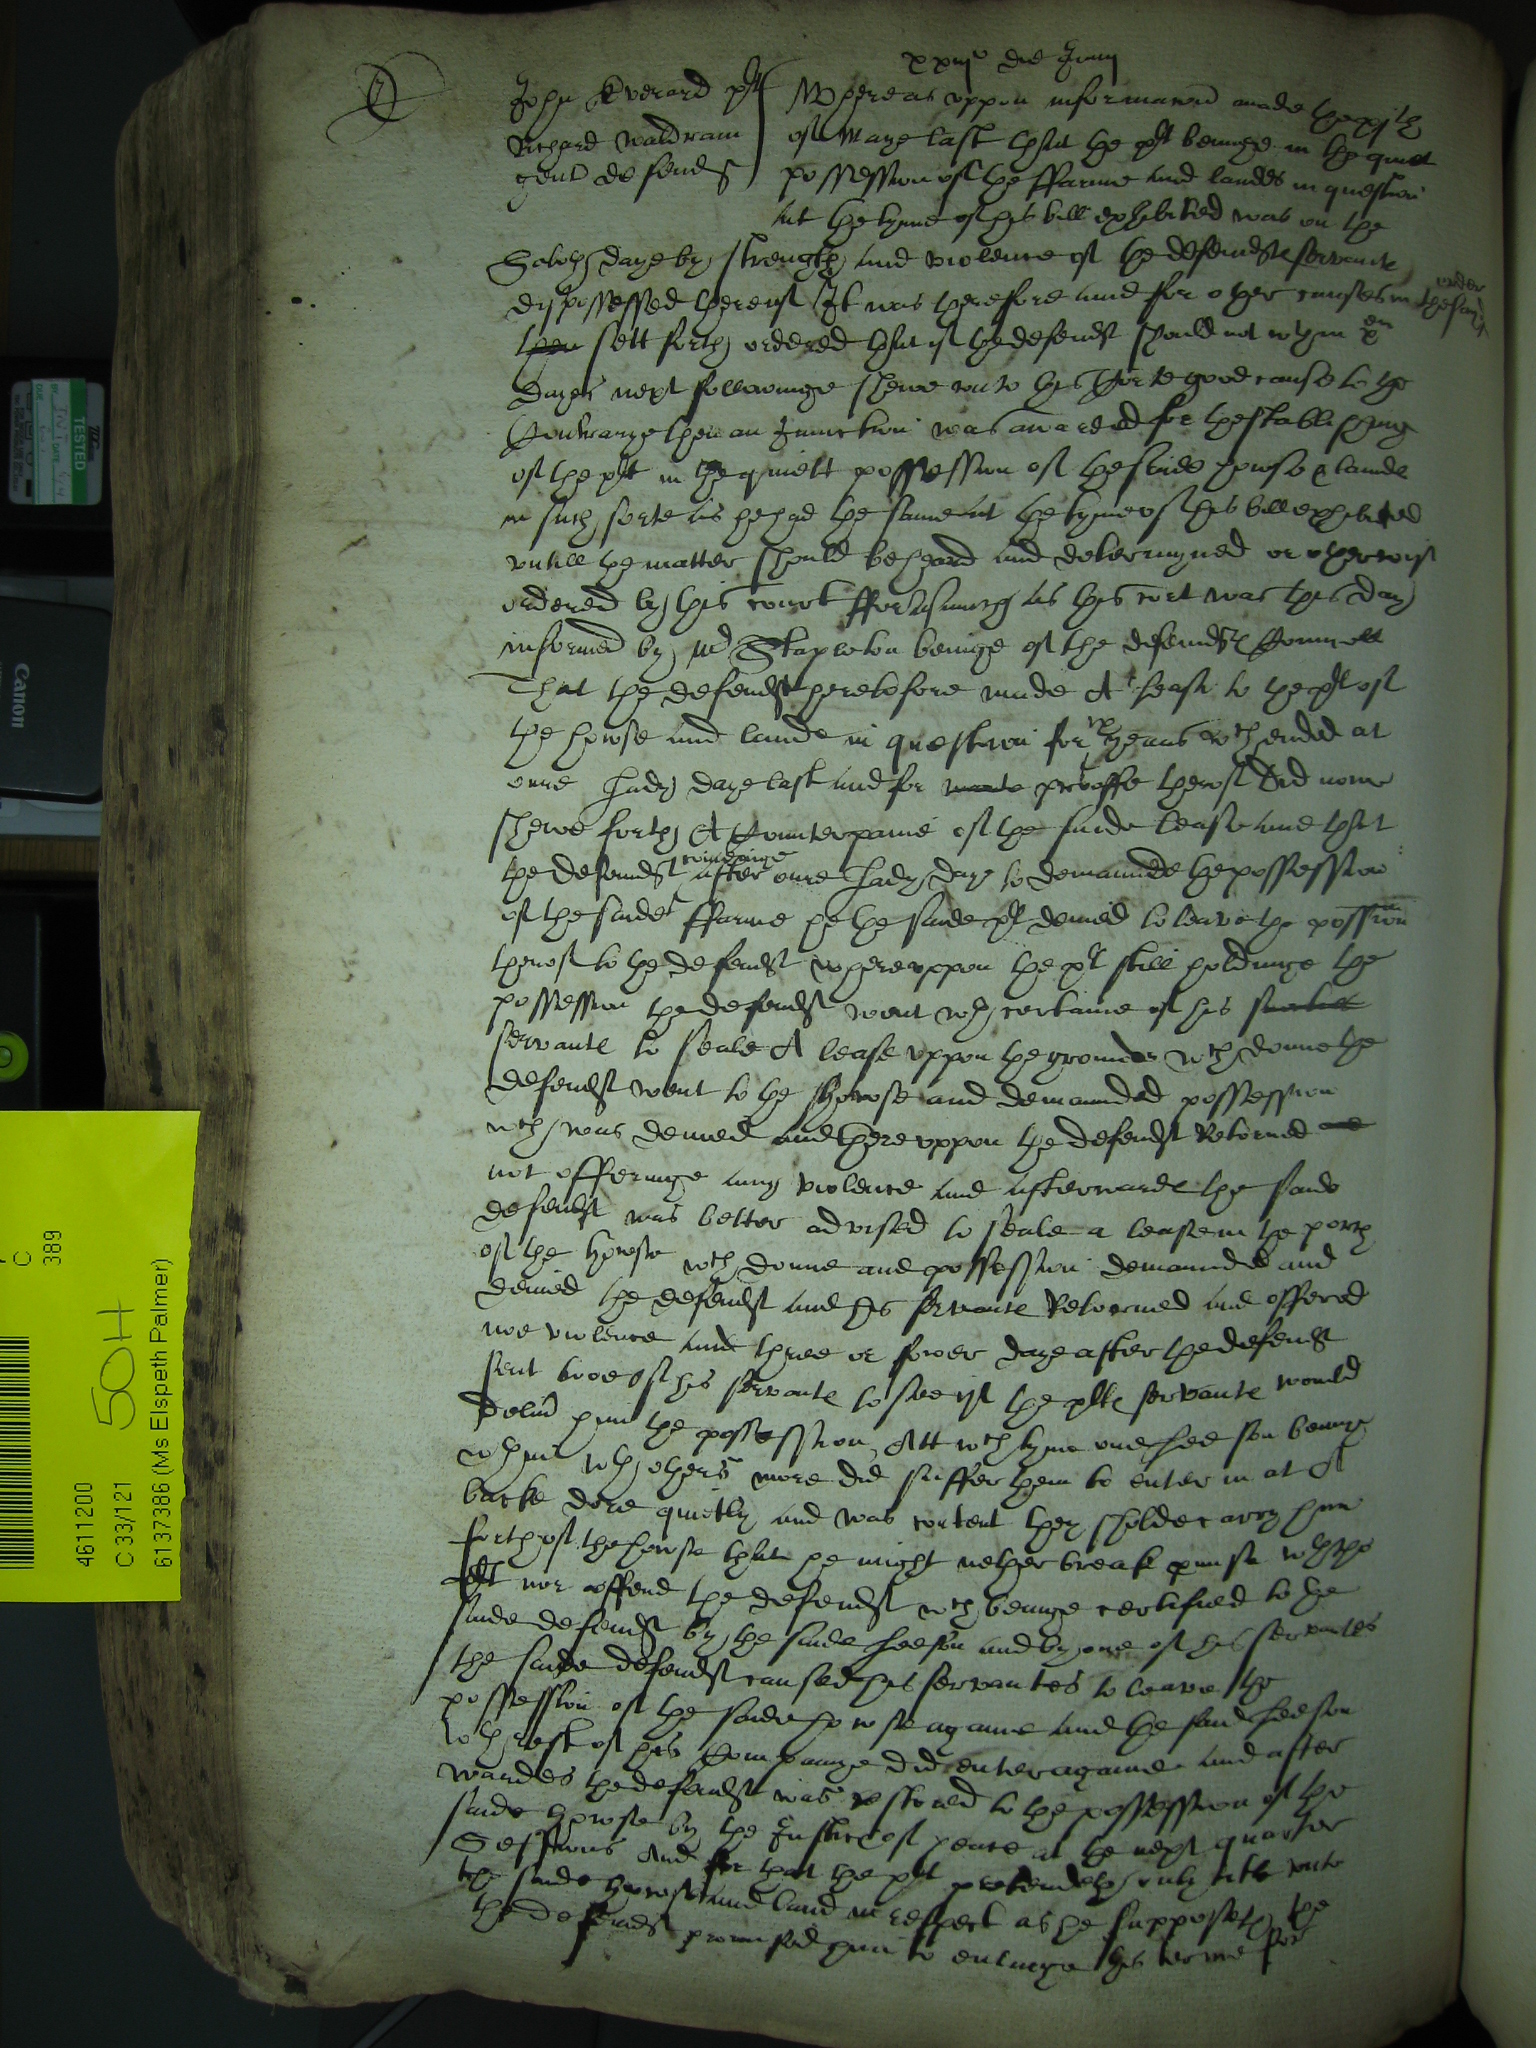 xxiijo die Junij
John Everard plt Whereas uppon informacion made the xjth
Richard Waldram of Maye last that the plt beinge in the quiet
gent defendt possession of the ffarme and landes in question
at the tyme of his bill exhibited was on the
Saboth daye by strength and violence of the defendtes servante
dispossessed thereof It was therefore and for other causes in the said order
then sett forth ordered that if the defendt should not within
dayes next followinge shewe unto this Corte good cause to the
Contrarye then an Iniunction was awarded for thestablishing
of the plt in the quiett possession of the saide howse & lande
in such sorte as he had the same at the tyme of his bill exhibited
untill the matter should be heard and determyned or otherwise
ordered by this court fforasmuch as this cort was this day
informed by Mr Stapleton beinge of the defendtes Councell
That the defendt heretofore made A lease to the plt of
the howse and lande in question for yeares wch ended at
oure Lady daye last and for proffe therof did nowe
shewe forth A Counterpaine of the saide lease and that
the defendt cominge after oure Lady daye to demaunde the possession
of the saide ffarme he the saide plt denied to leave the possession
therof to the defendt whereuppon the plt still holdinge the
possession the defendt went wth certaine of his
servante to seale A lease uppon the grounde wch donne the
defendt went to the howse and demaunded possession
wch was denied and thereuppon the defendt Retorned
not offeringe any violence and afterwarde the saide
defendt was better advised to seale a lease in the porch
of the howse wch donne and possession demaunded and
denied the defendt and his servante Retorned and offered
noe violence and three or fower daye after the defendt
sent twoe of his servante to see if the pltes servante would
deliver him the possession Att wch tyme one Leeson beinge
within wth others more did suffer them to enter in at A
backe dore quietly and was content they sholde carry him
forth of the howse that he might nether break promise with the
plt nor offend the defendt wch beinge certified to the
saide defendt by the saide Leeson and by one of his servantes
the saide defendt caused his servantes to leave the
possession of the saide howse againe and the said Leeson
wth rest of his Companye did enter againe and after
wardes the defendt was restored to the possession of the
saide howse by the Justice of peace at the next quarter
Sessions And for that the plt pretendeth only title unto
the saide howse and land in respect as he supposeth the
the defendt promised him to enlarge his terme for
TESTED
Canon
C
389
50H
4611200
C 33/121
6137386 (Ms Elspeth Palmer)